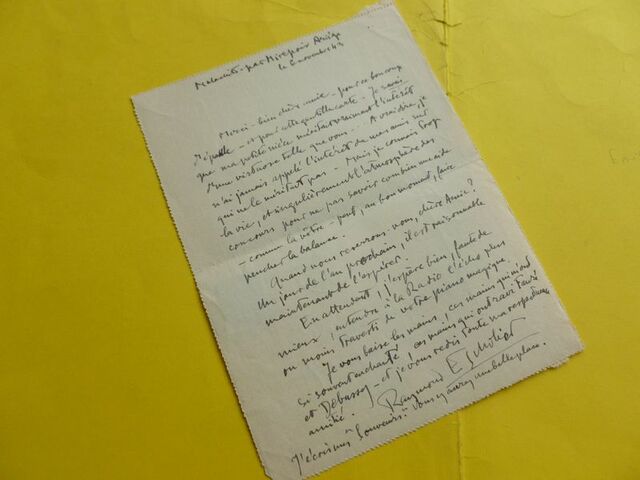 par Mirepoix Ariège
le 6 novembre 43
Merci – bien chère amie – pour ce beaucoup
– et pour cette gentille carte. Je savais
que ma petite nièce méritait vraiment l'intérêt
d'une virtuose telle que vous... A vrai dire, je
n'ai jamais appelé l'intérêt de mes amis sur
qui ne le méritait pas. Mais je connais trop
la vie, et singulièrement l'atmosphère des
concours pour ne pas savoir combien une aide
– comme la vôtre – peut, au bon moment, faire
pencher la balance.
Quand nous reverrons-nous, chère Amie?
Un jour de l'an prochain, il est raisonnable
maintenant de l'espérer.
En attendant, j'espère bien, faute de
mieux, entendre à la Radio l'écho plus
ou moins travesti de votre piano magique.
Je vous baise les mains, ces mains qui m'ont
si souvent enchanté, ces mains qui ont ravi Fauré
et Debussy – et je vous redis toute ma respectueuse
amitié.
Raymond Escholier
J'écris mes "Souvenirs": vous y aurez une belle place.